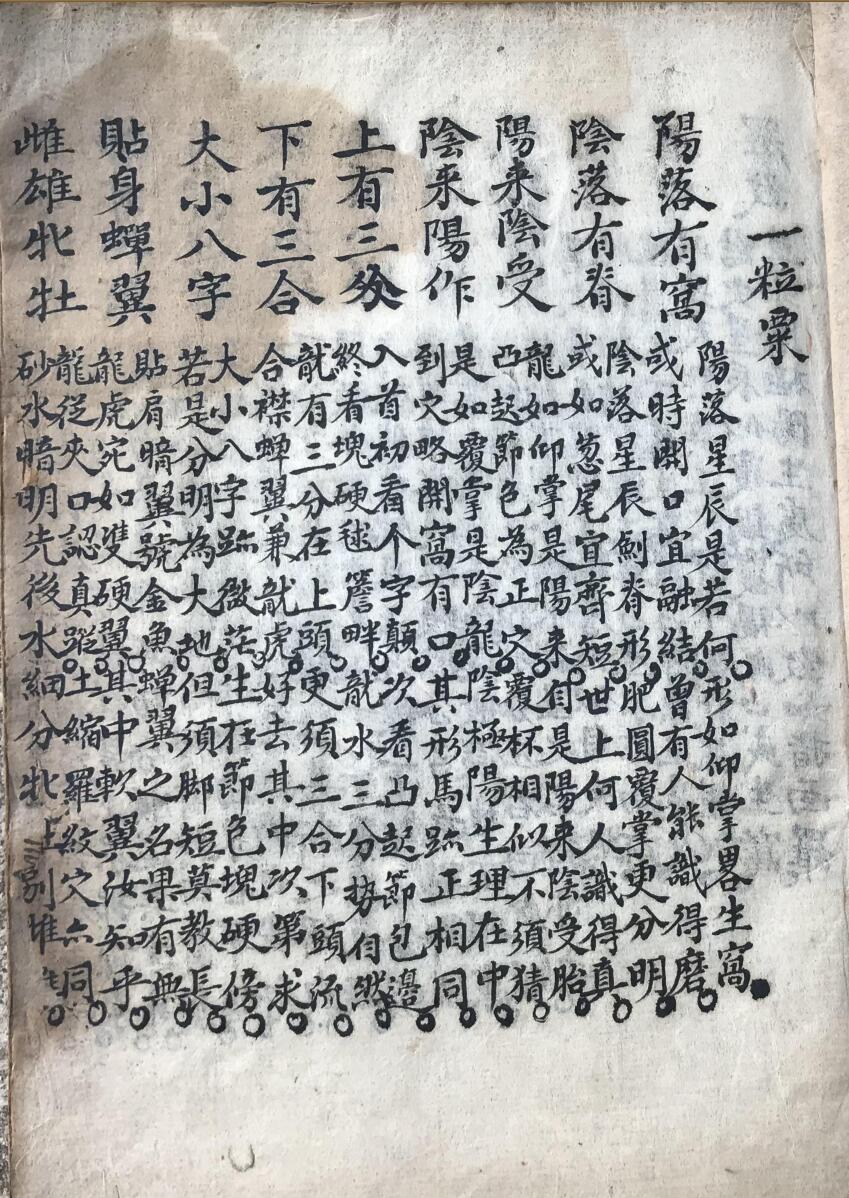 一粒粟
陽落有窩
陽落星辰是若何形如仰掌畧生窩
或時開口宜融結曾有人能識得磨
陰落有脊
陰落星辰劍脊形肥圓覆掌更分明
或如葱尾宜齊短世上何人識得真
陽来陰受
龍如仰掌是陽来自是陽来陰受胎
凸起節包為正穴覆杯相似不須猜
陰来陽作
是如覆掌是陰龍陰極陽生理在中
到穴略開窩有口其形馬跡正相同
上有三分
入首初看个字顛次看凸起節包邉
終看塊硬毬簷畔龍水三分勢自然
下有三合
龍有三分在上頭更須三合下頭流
合襟蟬翼兼龍虎好去其中次第求
大小八字
大小八字跡微茫生在節包塊硬傍
若是分明為大地但須脚短莫教長
貼身蟬翼
貼肩暗翼號金魚蟬翼之名果有無
龍虎宛如雙硬翼其中軟翼汝知乎
雌雄牝牡
龍從夾口認真蹤土縮羅紋穴亦同
砂水暗明先後水細分牝別雄